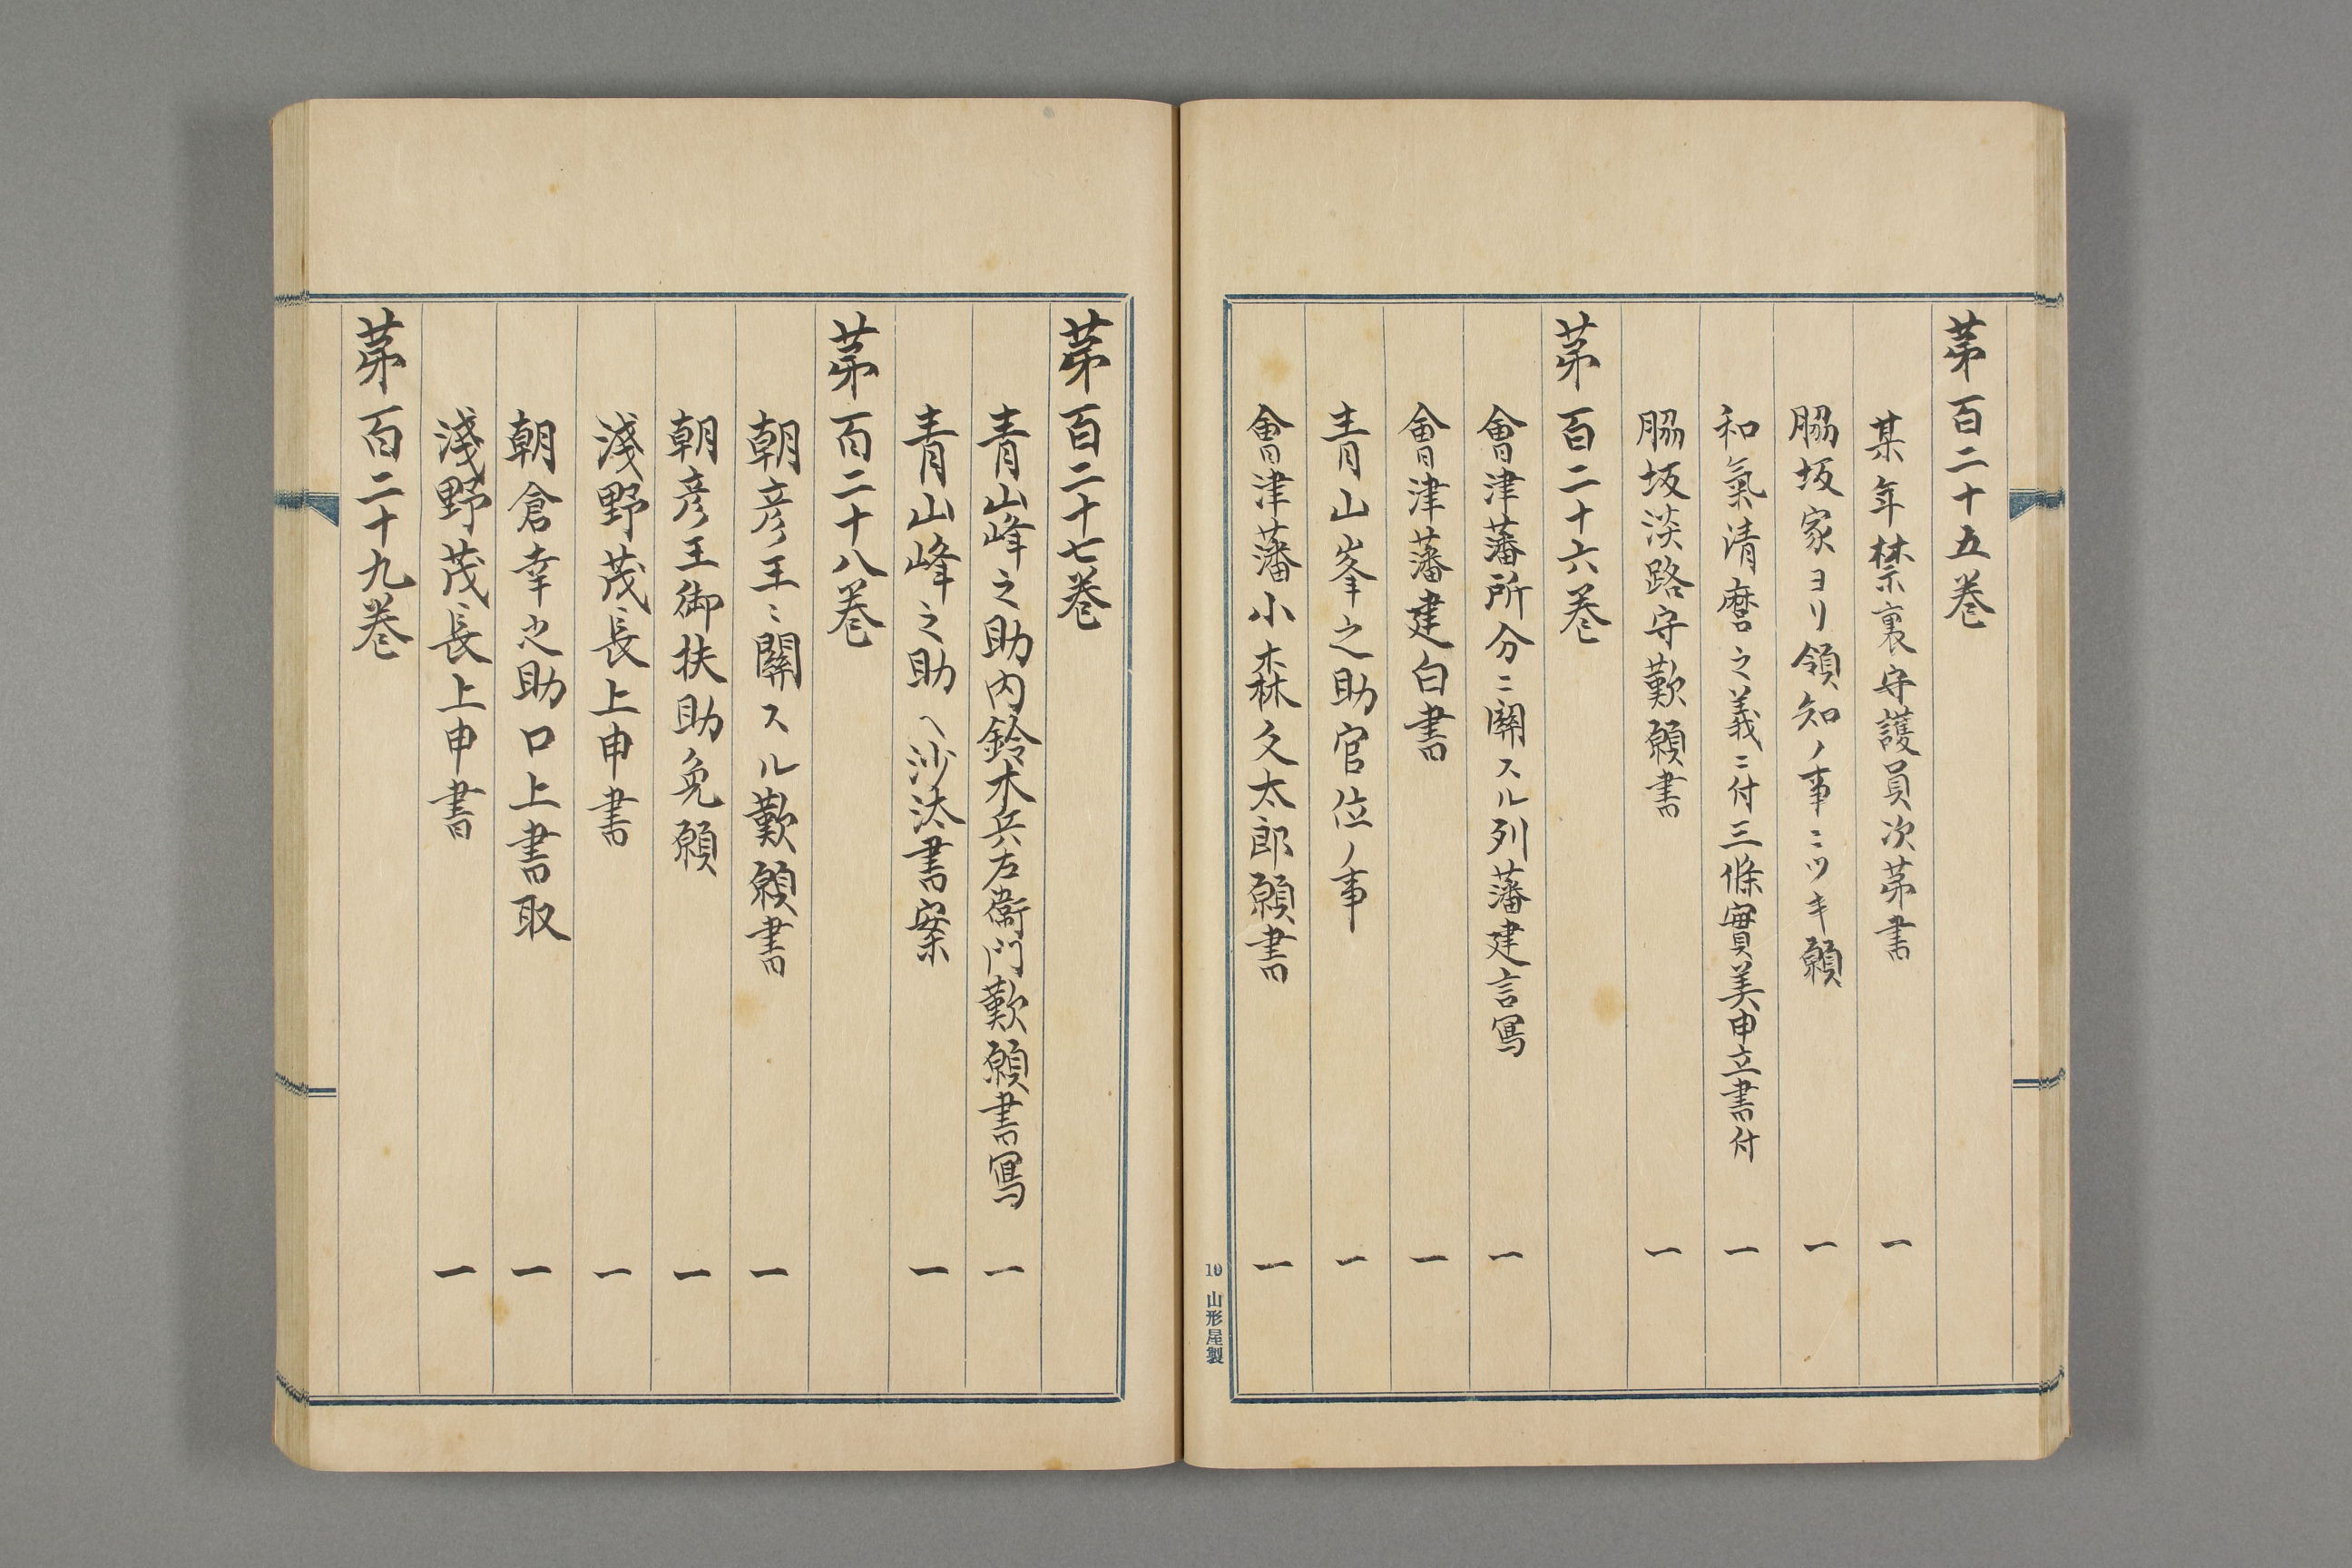 第百二十五巻
某年禁裏守護員次第書 一
脇坂家ヨリ領知ノ事ニツキ願 一
和氣清麿之義ニ付三條實美申立書付 一
脇坂淡路守歎願書 一
第百二十六巻
會津藩所分ニ關スル列藩建言寫 一
會津藩建白書 一
青山峯之助官位ノ事 一
會津藩小森久太郎願書 一
10 山形屋製
第百二十七巻
青山峰之助内鈴木兵左衞門歎願書寫 一
青山峰之助ヘ沙汰書案 一
第百二十八巻
朝彦王ニ關スル歎願書 一
朝彦王御扶助免願 一
淺野茂長上申書 一
朝倉幸之助口上書取 一
淺野茂長上申書 一
第百二十九巻